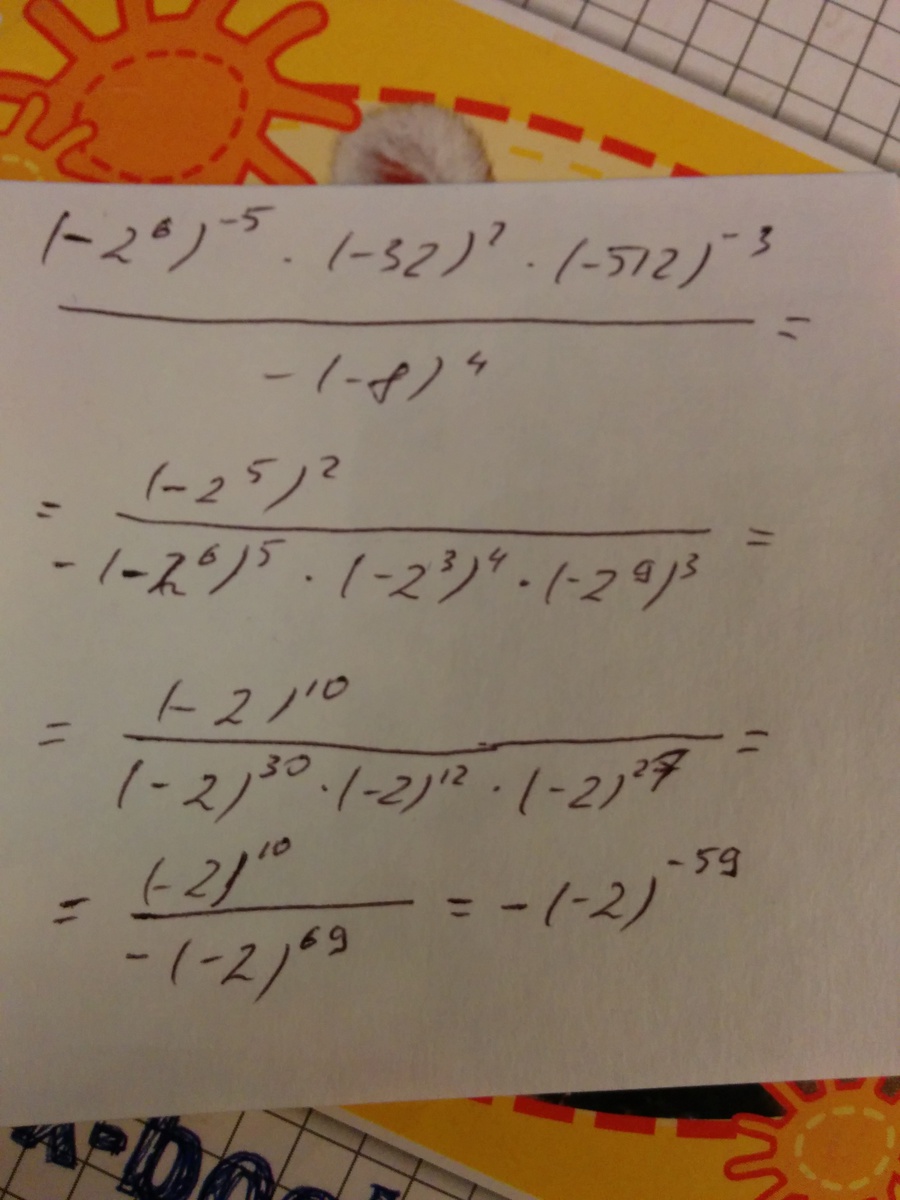 (-2⁶)⁻⁵ · (-32)² · (-512)⁻³
=
-(-8)⁴
= (-2⁵)²
=
-(-2⁶)⁵ · (-2³)⁴ · (-2⁹)³
= (-2)¹⁰
=
(-2)³⁰ · (-2)¹² · (-2)²⁷
= (-2)¹⁰
= -(-2)⁻⁵⁹
-(-2)⁶⁹